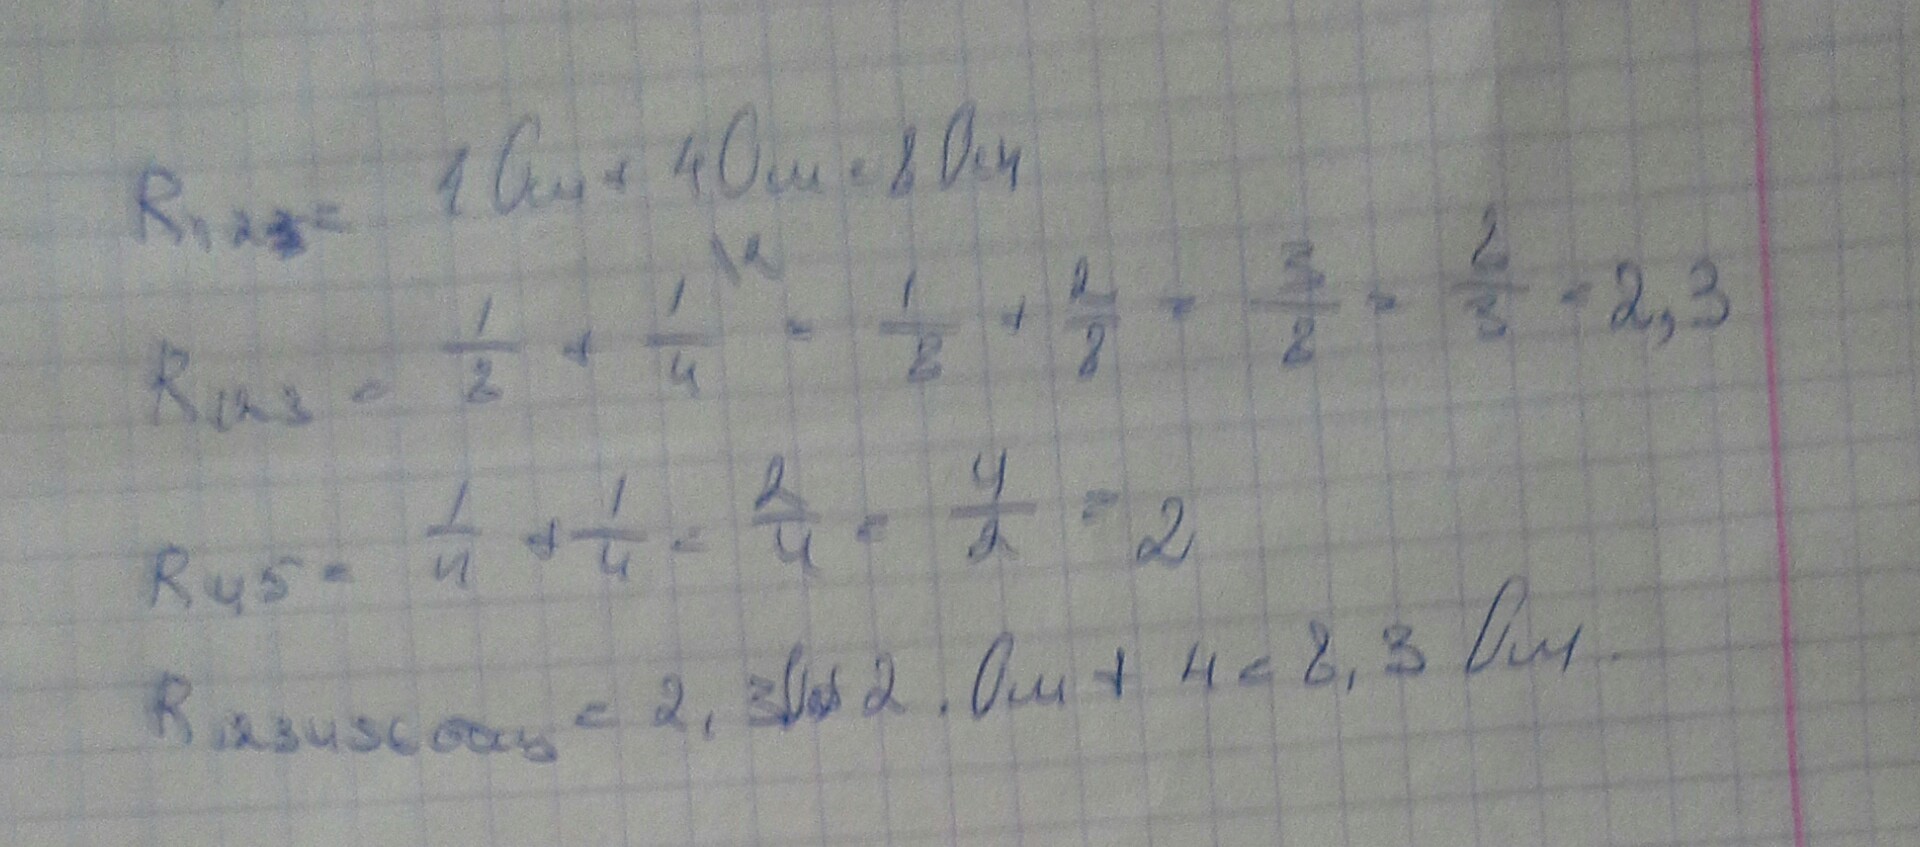 R₁₂ = 4 Ом + 4 Ом = 8 Ом
R₁₂₃ = 1/8 + 1/4 \2 = 1/8 + 2/8 = 3/8 = 8/3 = 2,3
R₄₅ = 1/4 + 1/4 = 2/4 = 4/2 = 2
R₁₂₃₄₅₆ общ = 2,3 + 2 Ом + 4 = 8,3 Ом